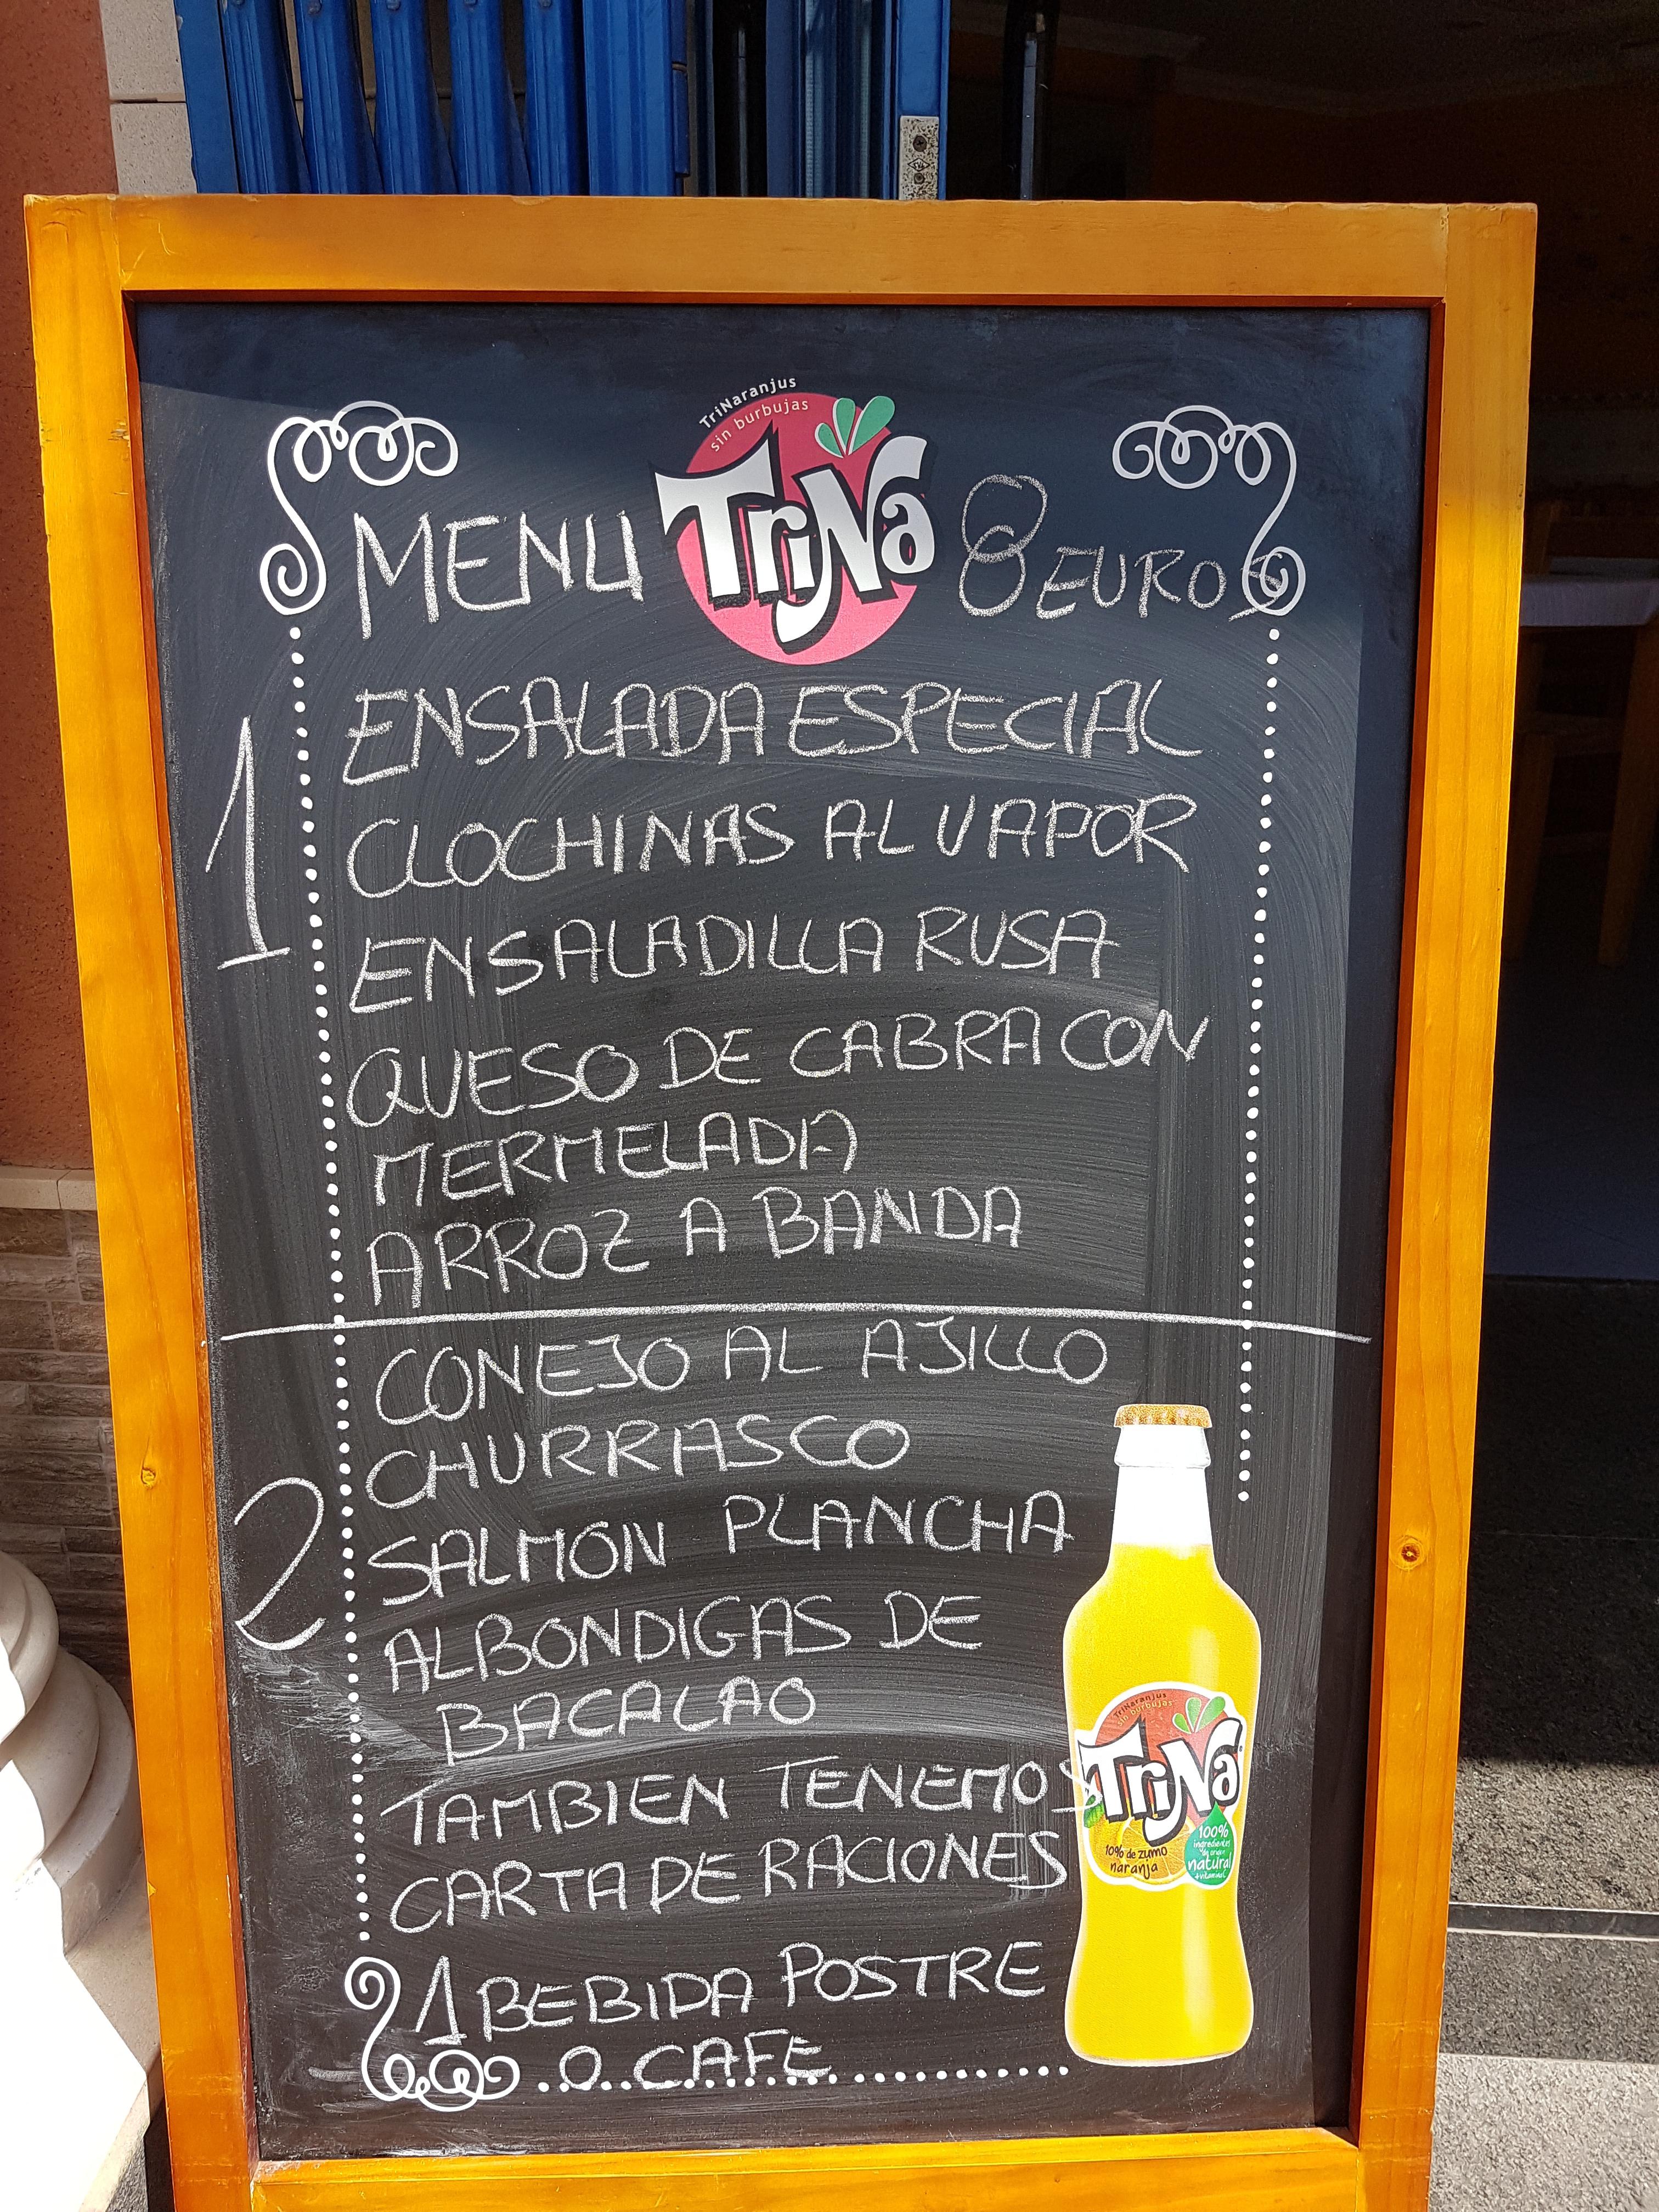 TriNaranjus
sin burbujas
MENU TriNa 8 EUROS
1
ENSALADA ESPECIAL
CLOCHINAS AL VAPOR
ENSALADILLA RUSA
QUESO DE CABRA CON
MERMELADA
ARROZ A BANDA
2
CONEJO AL AJILLO
CHURRASCO
SALMÓN PLANCHA
ALBONDIGAS DE
BACALAO
TAMBIEN TENEMOS
CARTA DE RACIONES
1 BEBIDA POSTRE
O CAFE
TriNaranjus
sin burbujas
TriNa
10% de zumo
naranja
100%
ingredientes
de origen
natural
+vitamina C